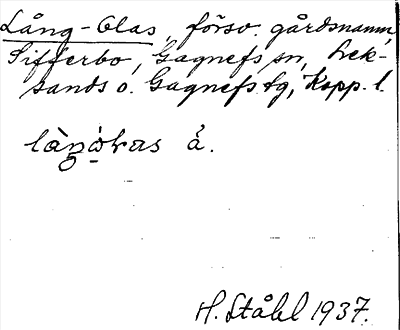 Lång-Olas, försv. gårdsnamn,
Sifferbo, Gagnefs sn, Lek-
sands o. Gagnefs tg, Kopp. l.
H. Ståhl 1937.